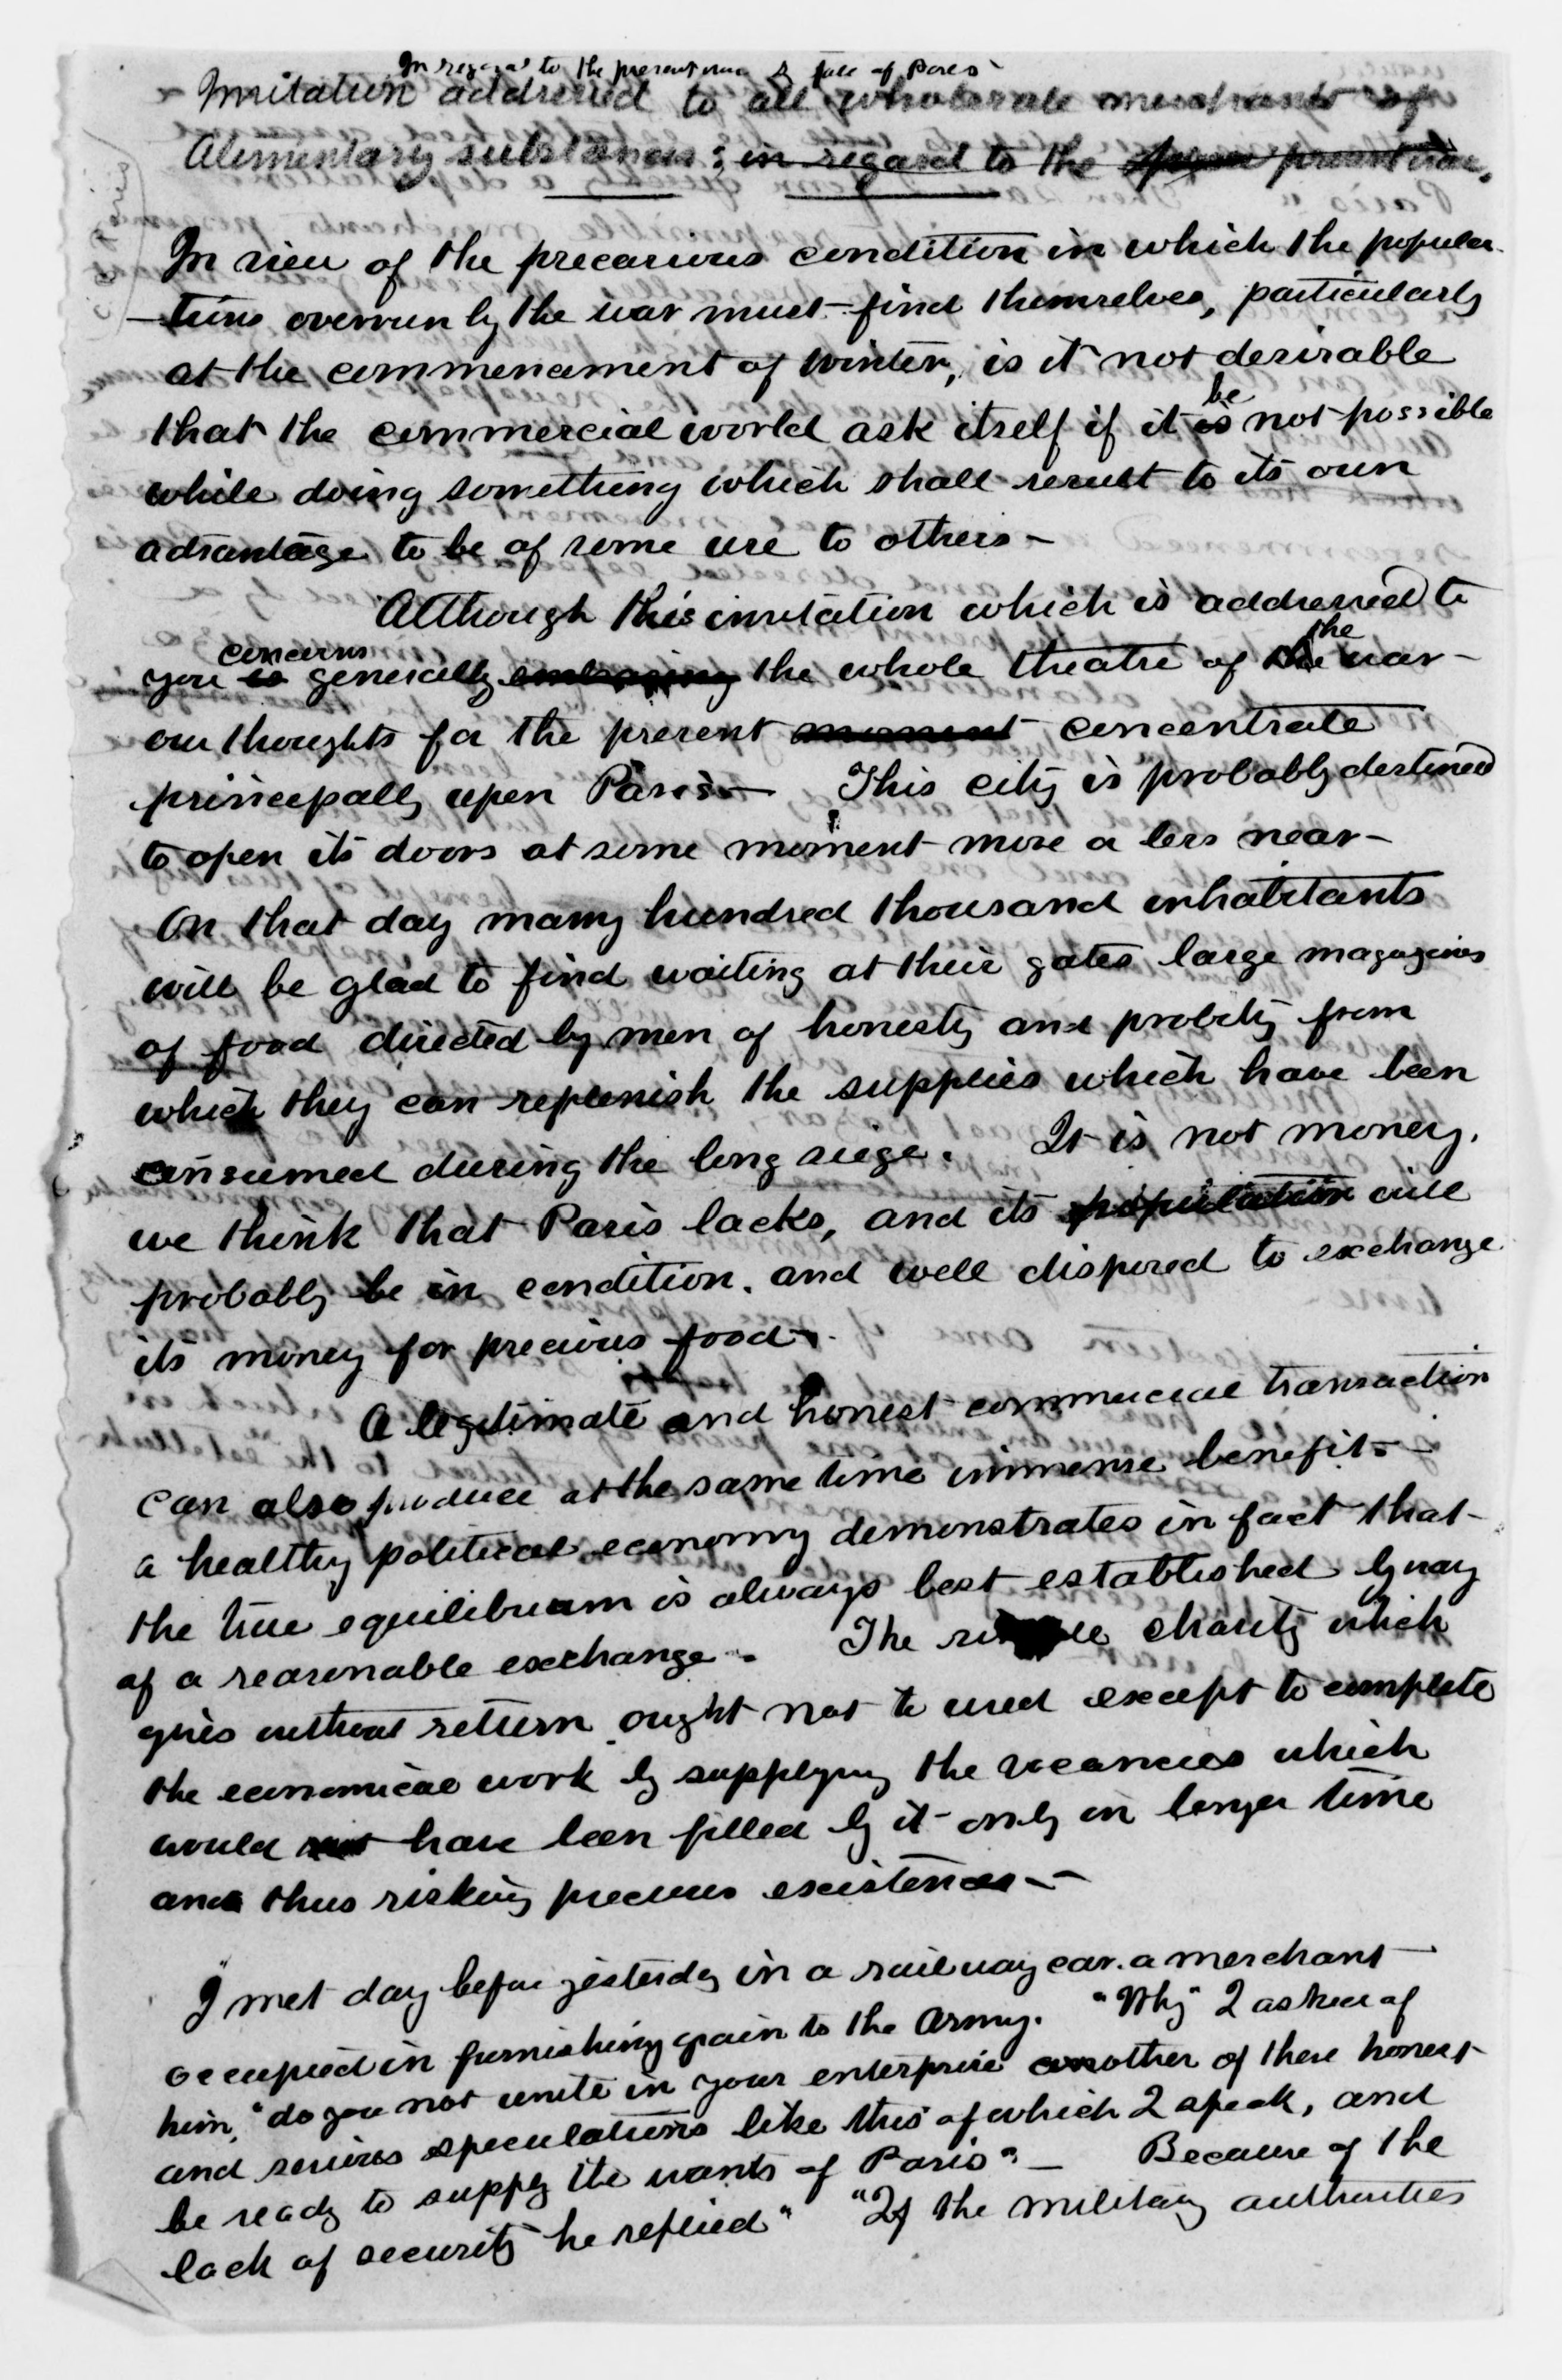 In regard to the present war & fall of Paris
Invitation addressed to all wholesale merchants of
Alimentary substances; in regard to the present war.
In view of the precarious condition in which the popula-
-tions overrun by the war must find themselves, particularly
at the commencement of winter, is it not desirable
be
that the commercial world ask itself if it is not possible
while doing something which shall result to its own
advantage to be of some use to others –
Although this invitation which is addressed to
concerns the
you is generally embracing the whole theatre of the war –
our thoughts for the present moment concentrate
principally upon Paris – This city is probably destined
to open its doors at some moment more or less near –
On that day many hundred thousand inhabitants
will be glad to find waiting at their gates large magazines
of food directed by men of honesty and probity from
which they can replenish the supplies which have been
consumed during the long siege. It is not money,
we think that Paris lacks, and its population will
probably be in condition, and well disposed to exchange
its money for precious food –
A legitimate and honest commercial transaction
can also produce at the same time immense benefit –
a healthy political economy demonstrates in fact that –
the true equilibrium is always best established by way
of a reasonable exchange. The simple charity which
gives without return ought not to used except to complete
the economical work by supplying the vacancies which
would not have been filled by it only in longer time
and thus risking precious existences –
I met day before yesterday in a railway car. a merchant
occupied in furnishing grain to the Army. "Why" I asked of
him, "do you not unite in your enterprise another of these honest
and serious speculations like this of which I speak, and
be ready to supply the wants of Paris" – Because of the
lack of security he replied" "If the military authorities